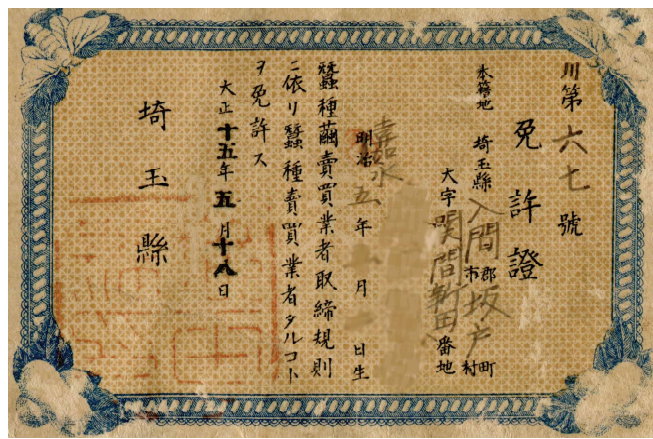 川第六七號
免許證
本籍地 埼玉縣入間郡市坂戸町村
大字関間新田番地
明治五年 月 日生
蠶種繭賣買業者取締規則
ニ依リ蠶種賣買業者タルコト
ヲ免許ス
大正十五年五月十八日
埼玉縣